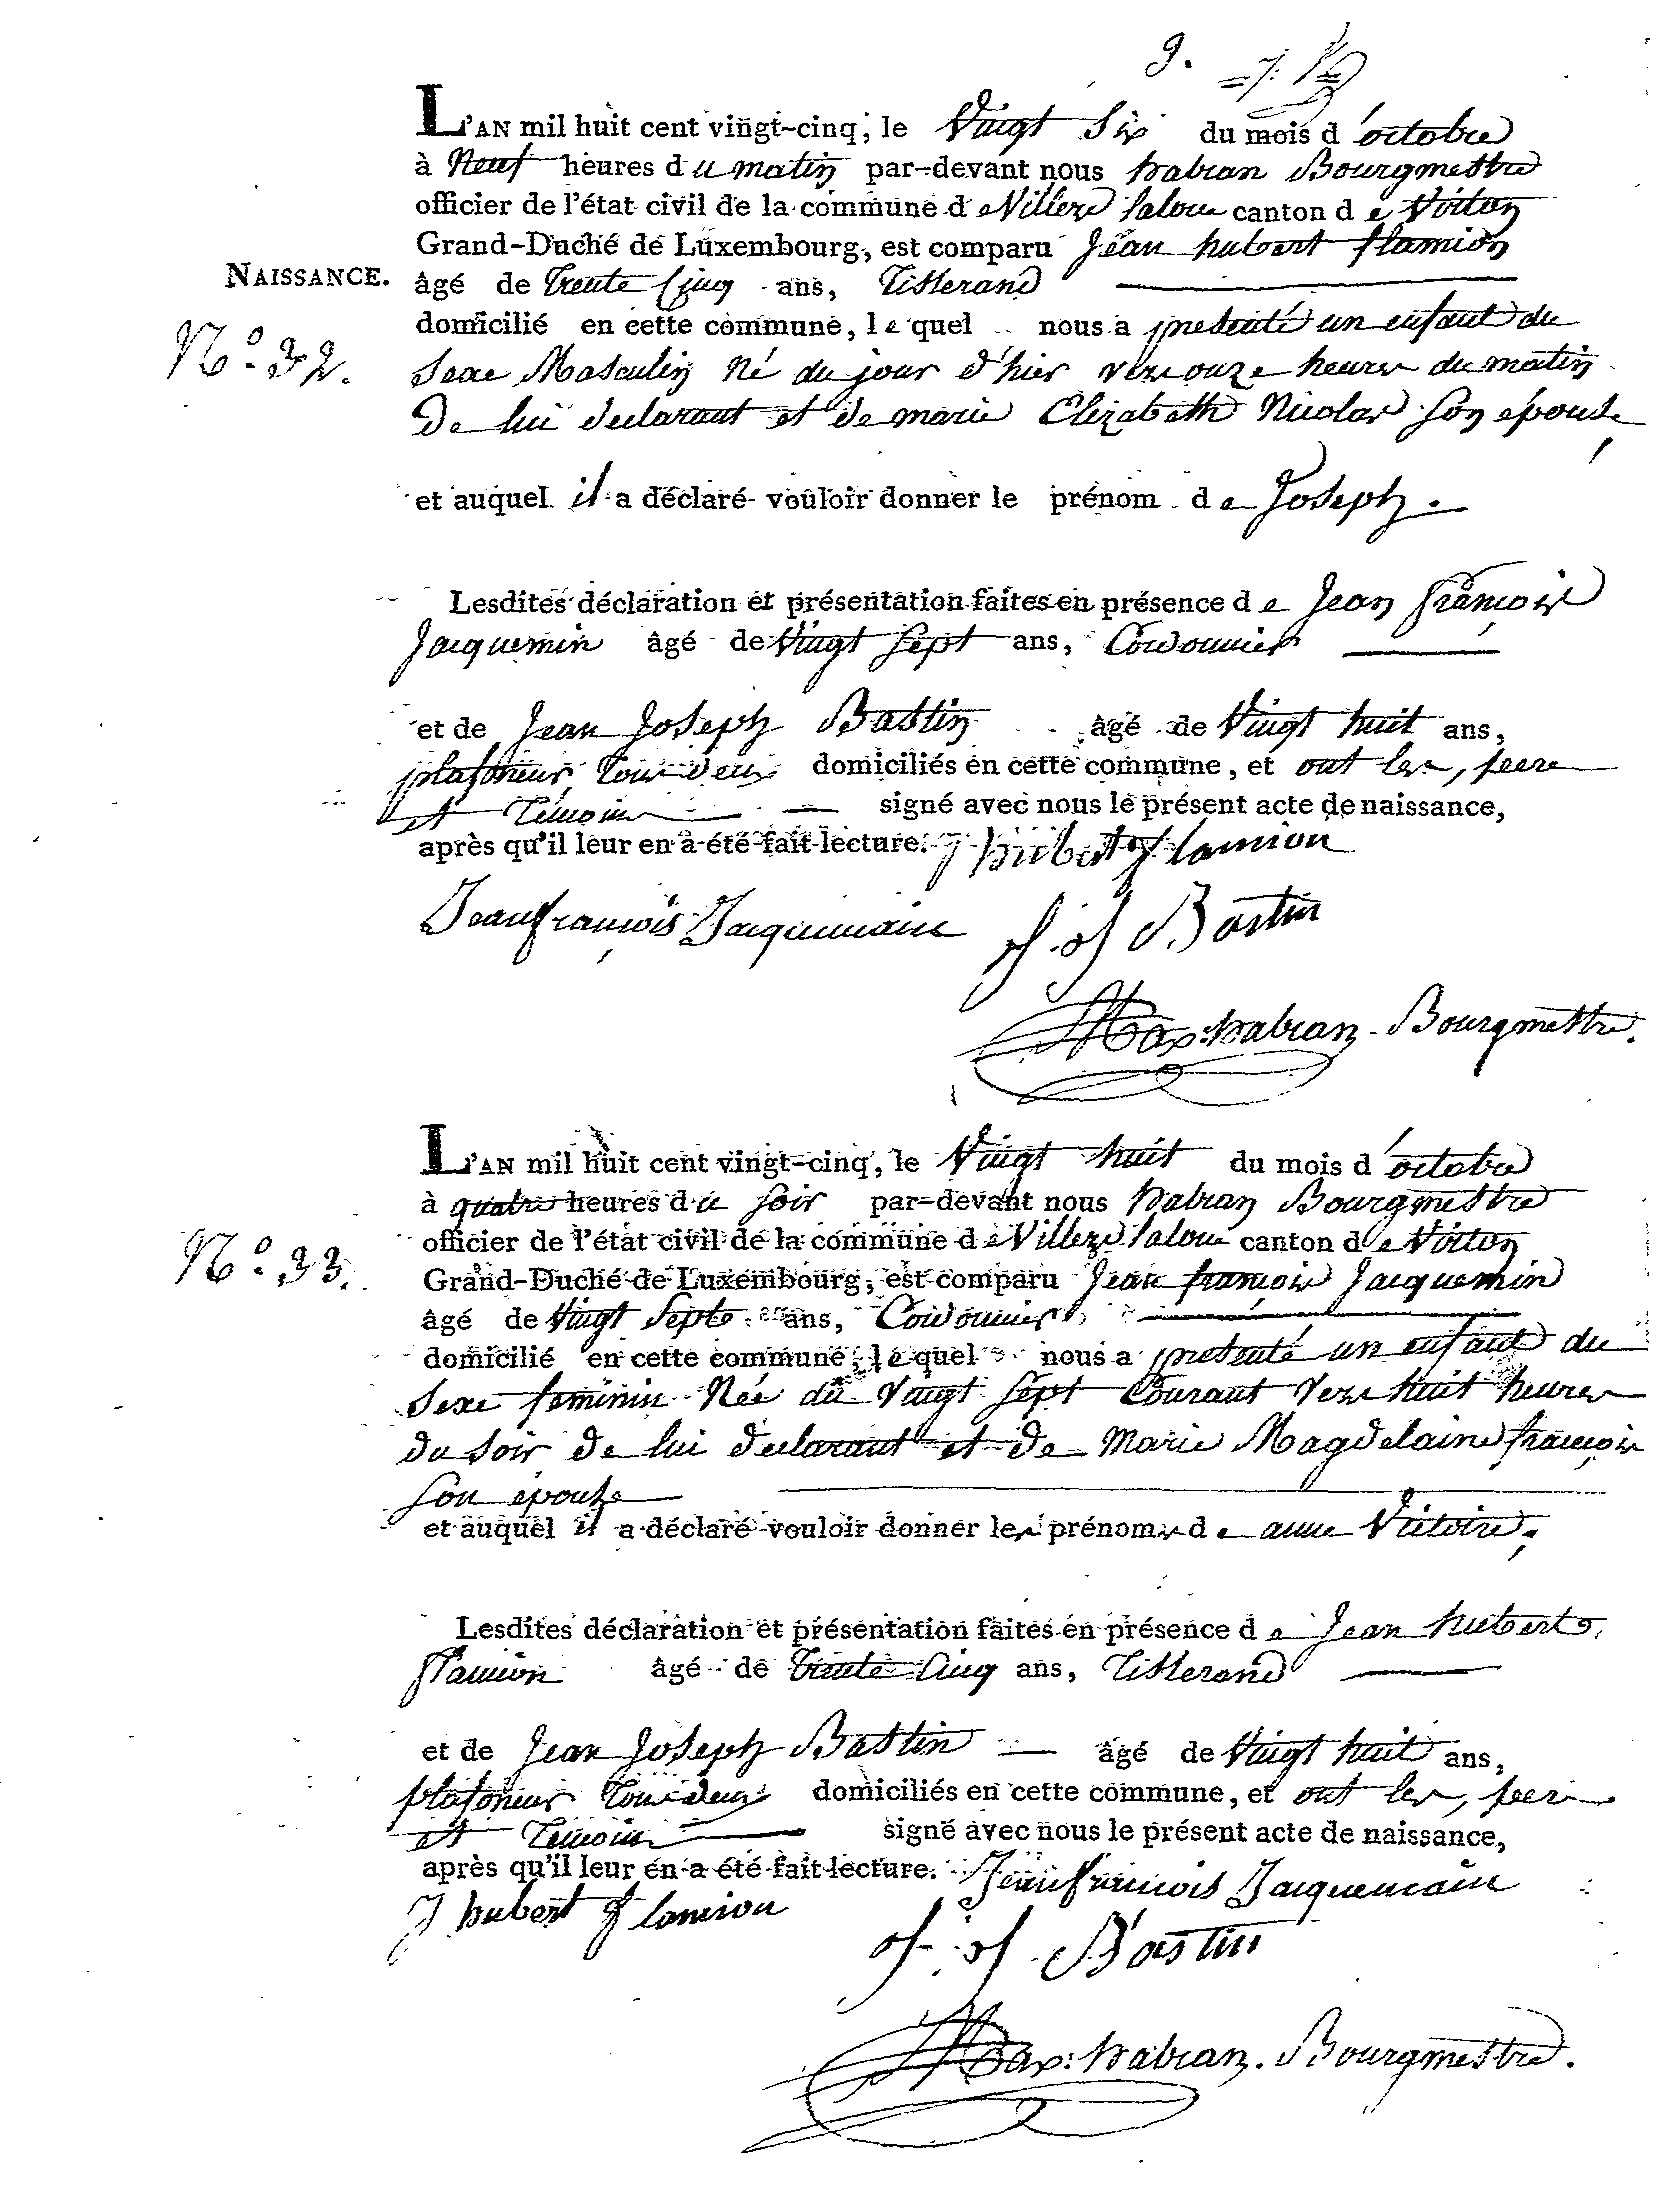 9.
L'AN mil huit cent vingt-cinq, le Vingt Six du mois d'octobre
à Neuf heures du matin par-devant nous habran Bourgmestre
officier de l'état civil de la commune de Villers Saloue canton de Virton
Grand-Duché de Luxembourg, est comparu Jean hubert flamion
NAISSANCE.
âgé de Trente Cinq ans, Tisserand
N.° 32.
domicilié en cette commune, lequel nous a presenté un enfant du
Sexe Masculin né du jour d'hier vers onze heures du matin
De lui declarant et de marie Elizabeth Nicolas Son épouse,
et auquel il a déclaré vouloir donner le prénom de Joseph.
Lesdites déclaration et présentation faites en présence de Jean françois
Jacquemin âgé de Vingt Sept ans, Cordonnier
et de Jean Joseph Bastin âgé de Vingt huit ans,
plafoneur, Tous deux domiciliés en cette commune, et ont les, peere
et Témoins signé avec nous le présent acte de naissance,
après qu'il leur en a été fait lecture. J hubert flamion
Jean françois Jacquemain J. J Bastin
Max: habran Bourgmestre.
L'AN mil huit cent vingt-cinq, le Vingt huit du mois d'octobre
à quatre heures du Soir par-devant nous habran Bourgmestre
officier de l'état civil de la commune de Villers Saloue canton de Virton
N.° 33.
Grand-Duché de Luxembourg, est comparu Jean françois Jacquemin
âgé de Vingt Sept ans, Cordonnier
domicilié en cette commune, lequel nous a presenté un enfant du
Sexe feminin Née du Vingt Sept Courant Vers huit heures
du Soir de lui declarant et de Marie Magdelaine françois
Son épouse
et auquel il a déclaré vouloir donner les prénoms de anne Victoire,
Lesdites déclaration et présentation faites en présence de Jean hubert
flamion âgé de Trente Cinq ans, Tisserand
et de Jean Joseph Bastin âgé de Vingt huit ans,
plafoneur Tous deux domiciliés en cette commune, et ont les, peere
et Témoins signé avec nous le présent acte de naissance,
après qu'il leur en a été fait lecture. Jean françois Jacquemain
J hubert flamion
J. J. Bastin
Max: habran. Bourgmestre.